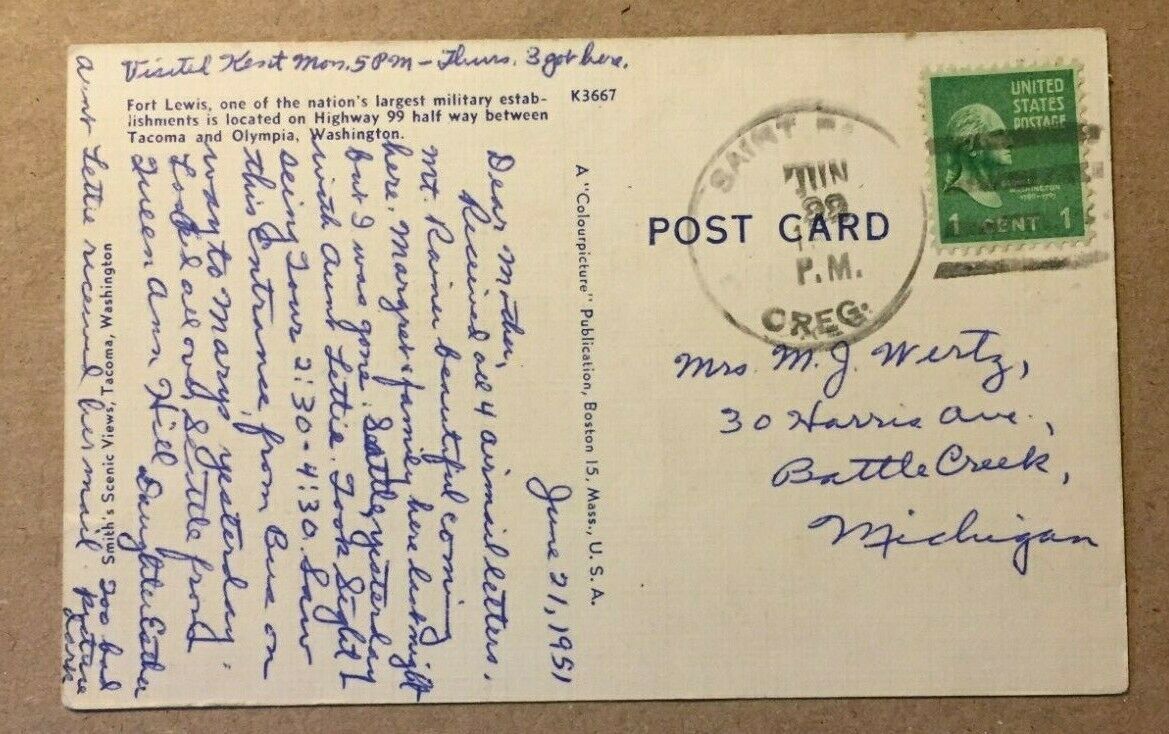 Visited Kent Mon. 5 PM – Thurs. 3 got here.
Fort Lewis, one of the nation's largest military estab-
lishments is located on Highway 99 half way between
Tacoma and Olympia, Washington.
K3667
June 21, 1951
Dear Mother,
Received all 4 airmail letters.
Mt. Rainer beautiful coming
here. Margret & family here last night
but I was gone. Seattle, yesterday
with Aunt Lettie. Took Sight
seing Tour 2:30 - 4:30. Saw
this Entrance, from Bus on
way to Marys yesterday.
Looked all over Seattle from
Queen Ann Hill Daughter Esther
Aunt Lettie received her mail.
Too bad
picture
dark
Smith's Scenic Views, Tacoma, Washington
A "Colourpicture" Publication, Boston 15, Mass., U. S. A.
POST CARD
SAINT
JUN
P.M.
OREG.
UNITED
STATES
POSTAGE
WASHINGTON
1 CENT 1
Mrs. M. J. Wertz,
30 Harris Ave.,
Battle Creek,
Michigan